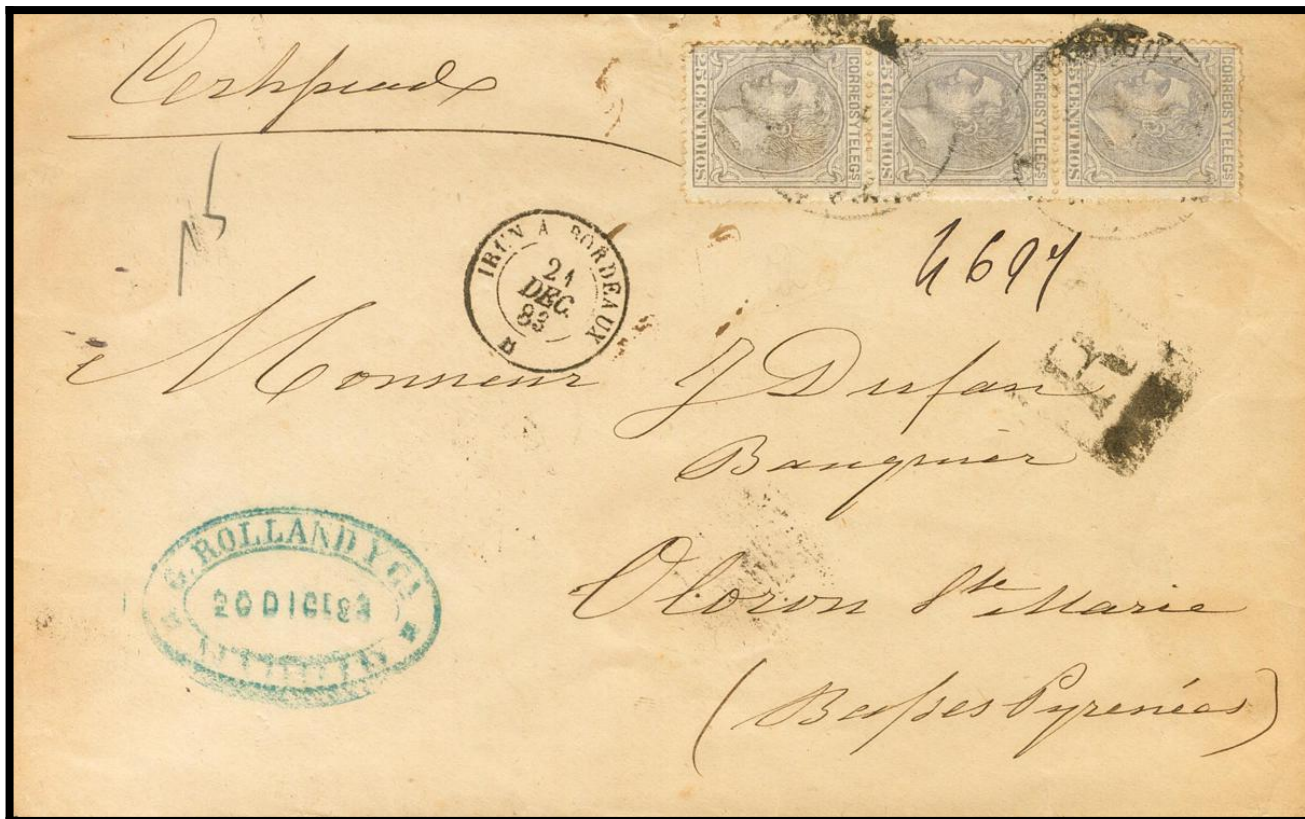 Certificado
CORREOS Y TELEGS
25 CENTIMOS
CORREOS Y TELEGS
25 CENTIMOS
CORREOS Y TELEGS
25 CENTIMOS
4697
IRUN À BORDEAUX
21
DEC.
83
Monsieur J Dufau
Banquier
Oloron Ste Marie
(Basses Pyrénées)
G. ROLLAND Y Ca
20 DICE 83
R